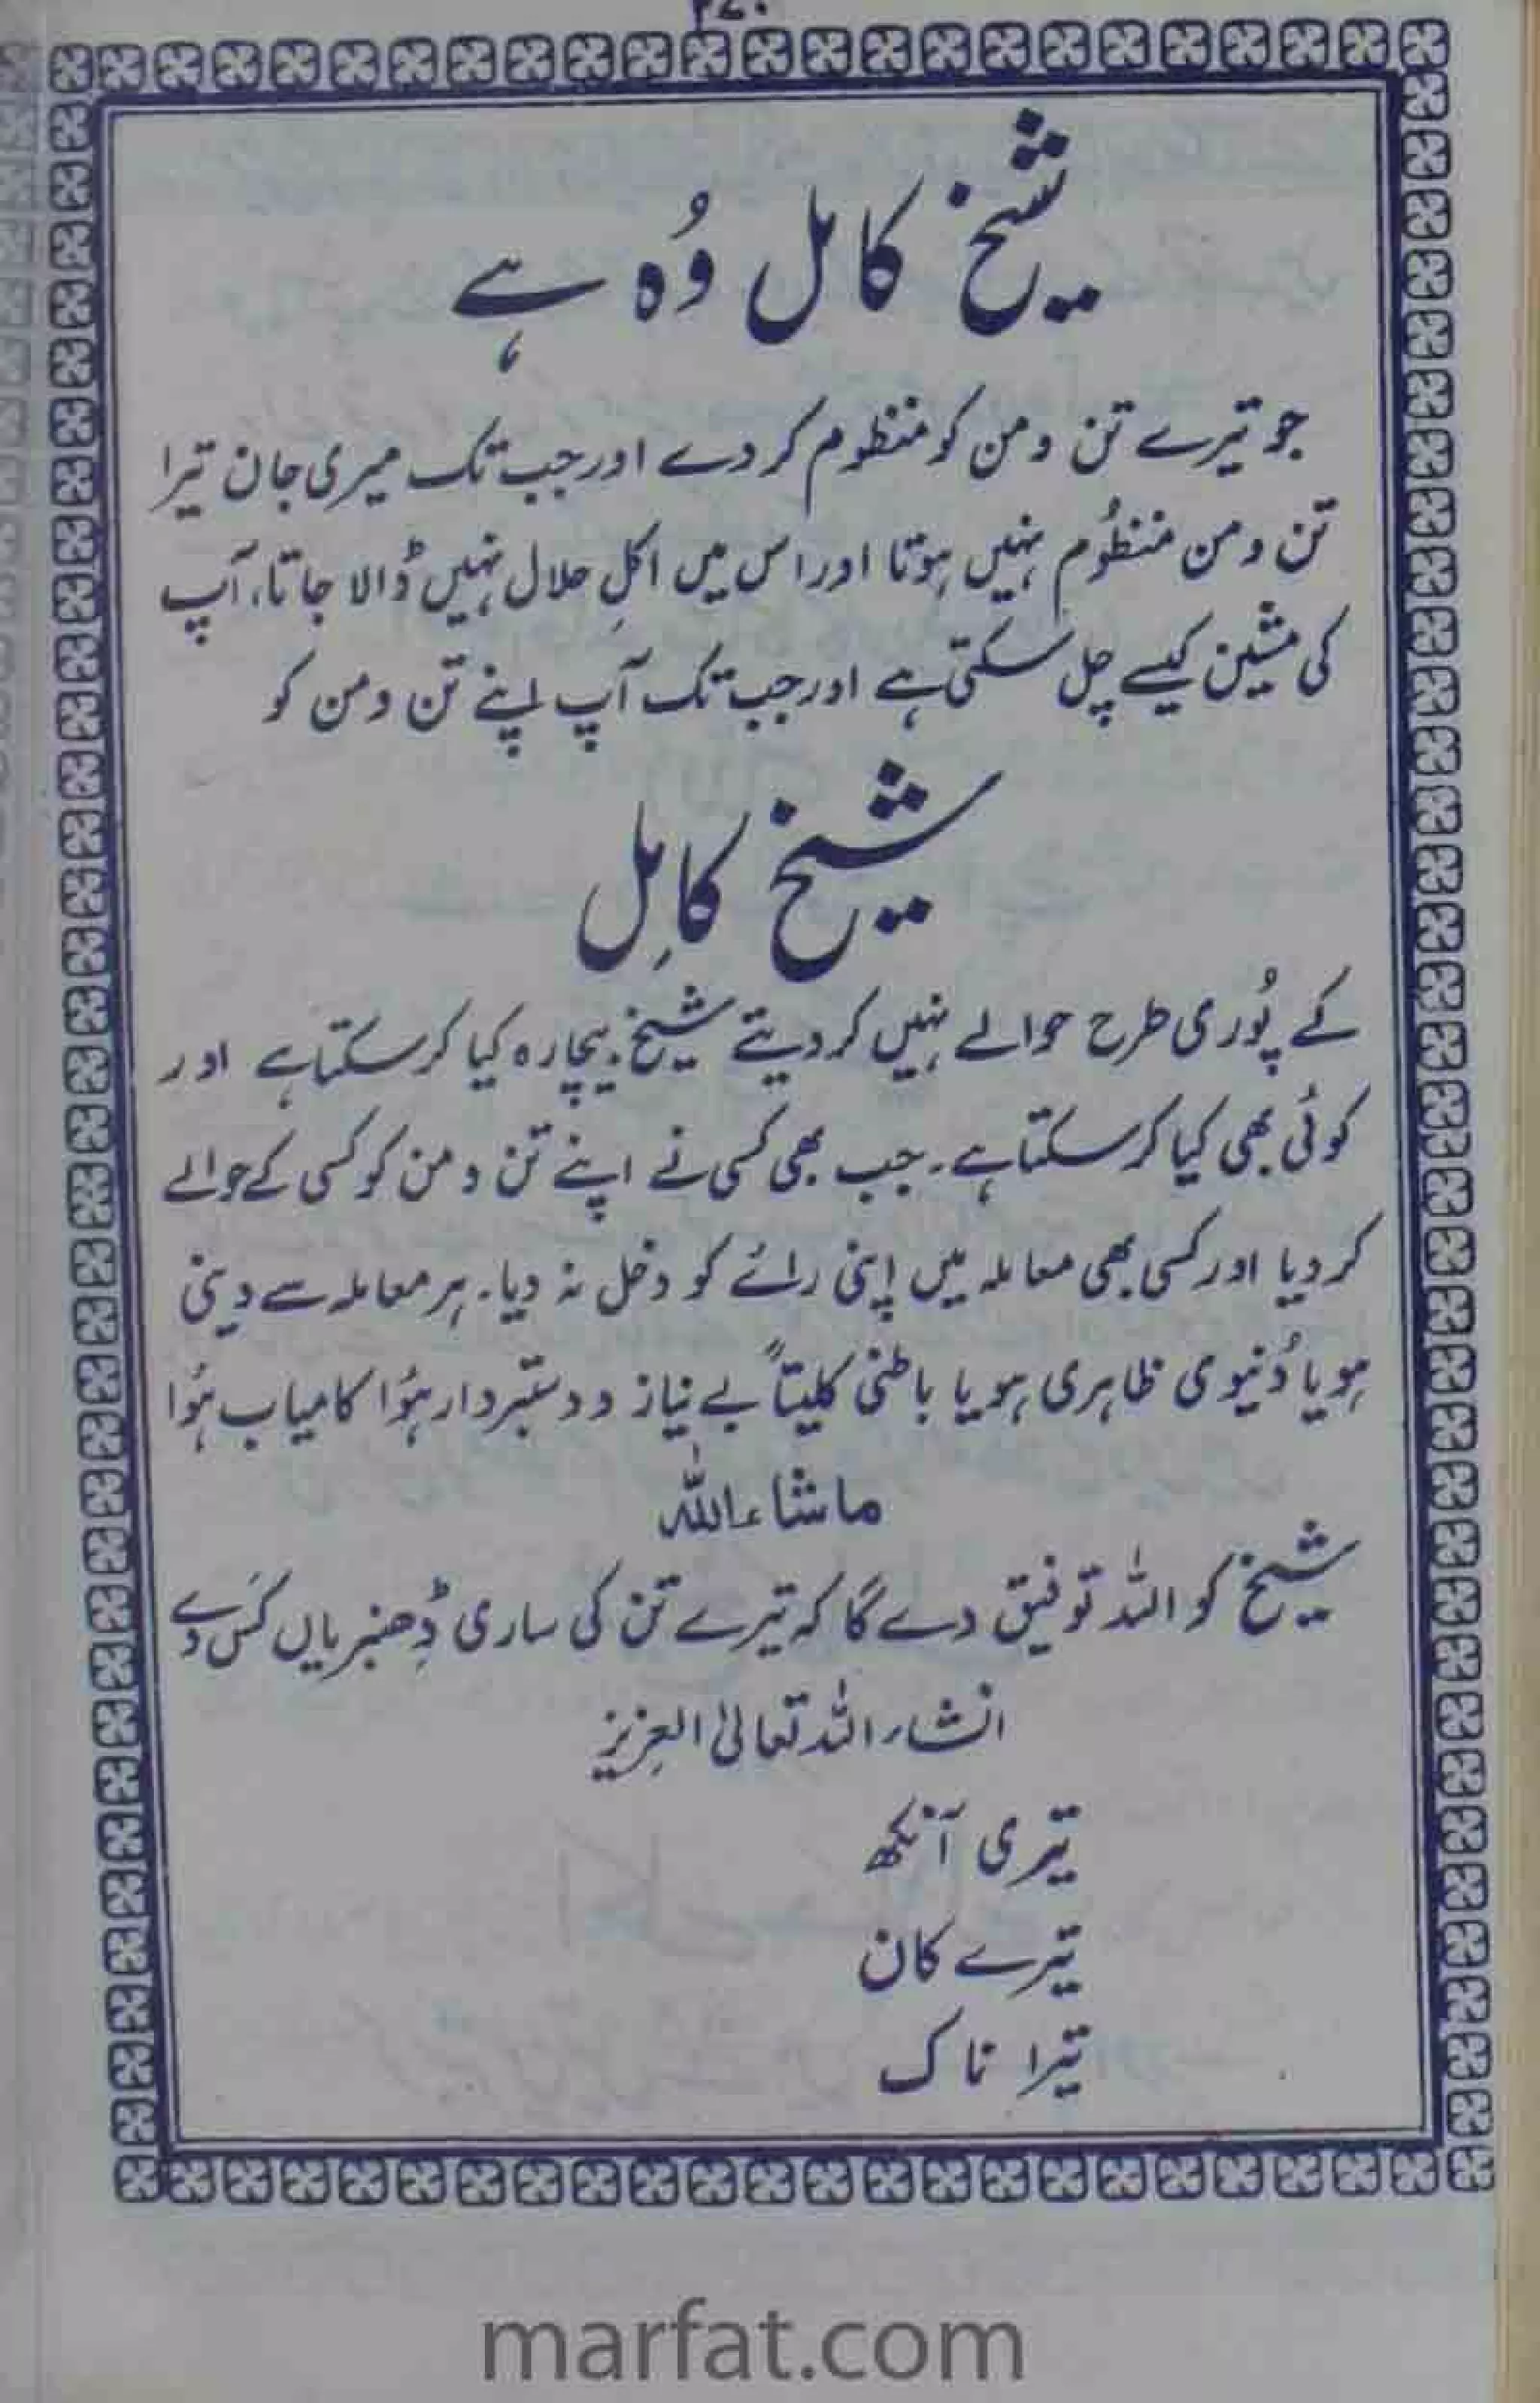 شیخ کامل وُہ ہے
جو تیرے تن و من کو منظوم کر دے اور جب تک میری جان تیرا
تن و من منظُوم نہیں ہوتا اور اس میں اکلِ حلال نہیں ڈالا جاتا، آپ
کی مشین کیسے چل سکتی ہے اور جب تک آپ اپنے تن و من کو
شیخ کامِل
کے پُوری طرح حوالے نہیں کر دیتے شیخ بیچارہ کیا کر سکتا ہے اور
کوئی بھی کیا کر سکتا ہے۔ جب بھی کسی نے اپنے تن و من کو کسی کے حوالے
کر دیا اور کسی بھی معاملہ میں اپنی رائے کو دخل نہ دیا۔ ہر معاملہ سے دینی
ہو یا دُنیوی ظاہری ہو یا باطنی کلیتاً بے نیاز و دستبردار ہؤا کامیاب ہؤا
ماشاء اللہ
شیخ کو اللہ توفیق دے گا کہ تیرے تن کی ساری ڈھنبریاں کَس دے
انشاء اللہ تعالیٰ العزیز
تیری آنکھ
تیرے کان
تیرا ناک
marfat.com